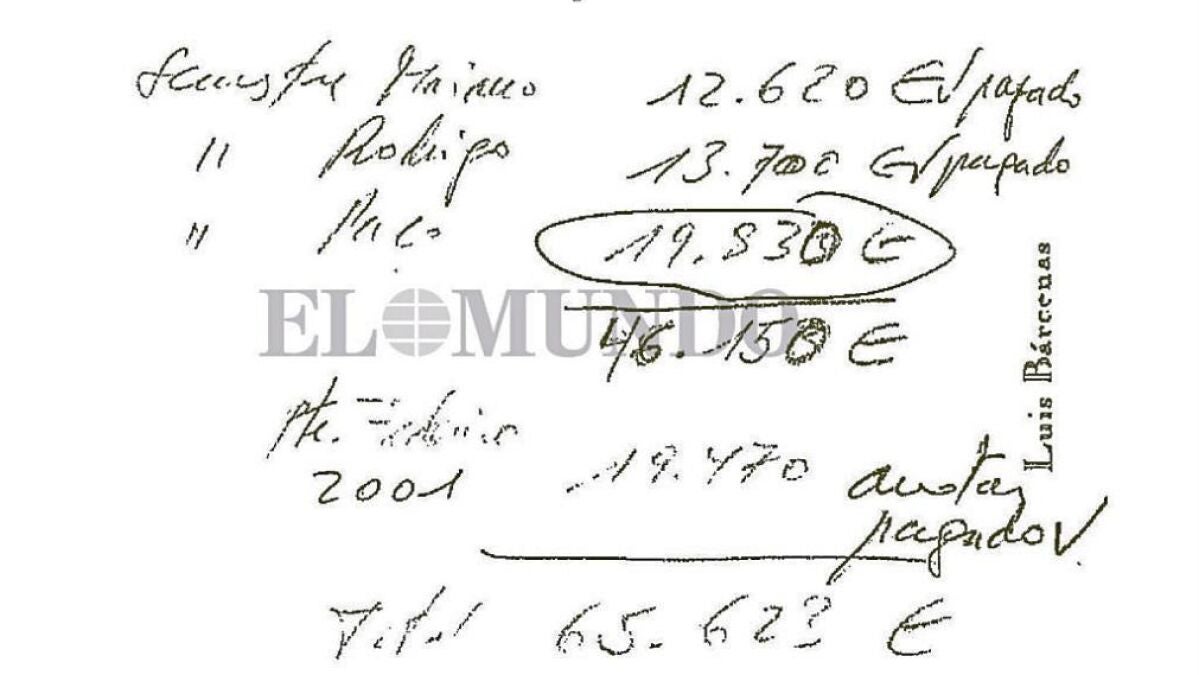 Semestre Mariano 12.620 € √ pagado
" Rodrigo 13.700 € √ pagado
" Paco 19.830 €
EL MUNDO
46.150 €
Pte.
2001 19.470 anotar
pagado √
Total 65.623 €
Luis Bárcenas